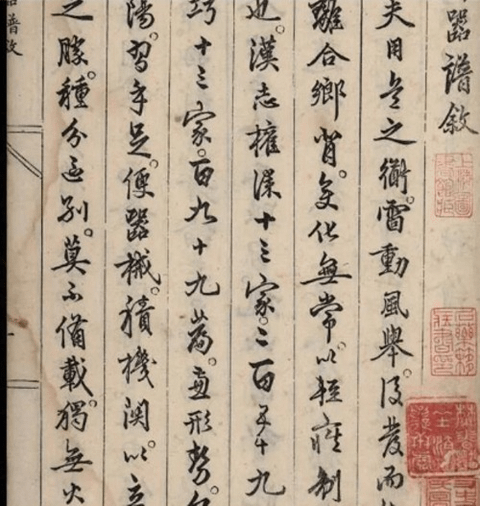 器譜敘
夫用兵之術。雷動風舉。後發而
離合鄉背。變化無常。以輕疾制
也。漢志權謀十三家。二百五十九
巧十三家。百九十九篇。兼形勢。
陽。習手足。便器械。積機關。以立
之勝。種分區別。莫不備載。獨無火
器譜敘